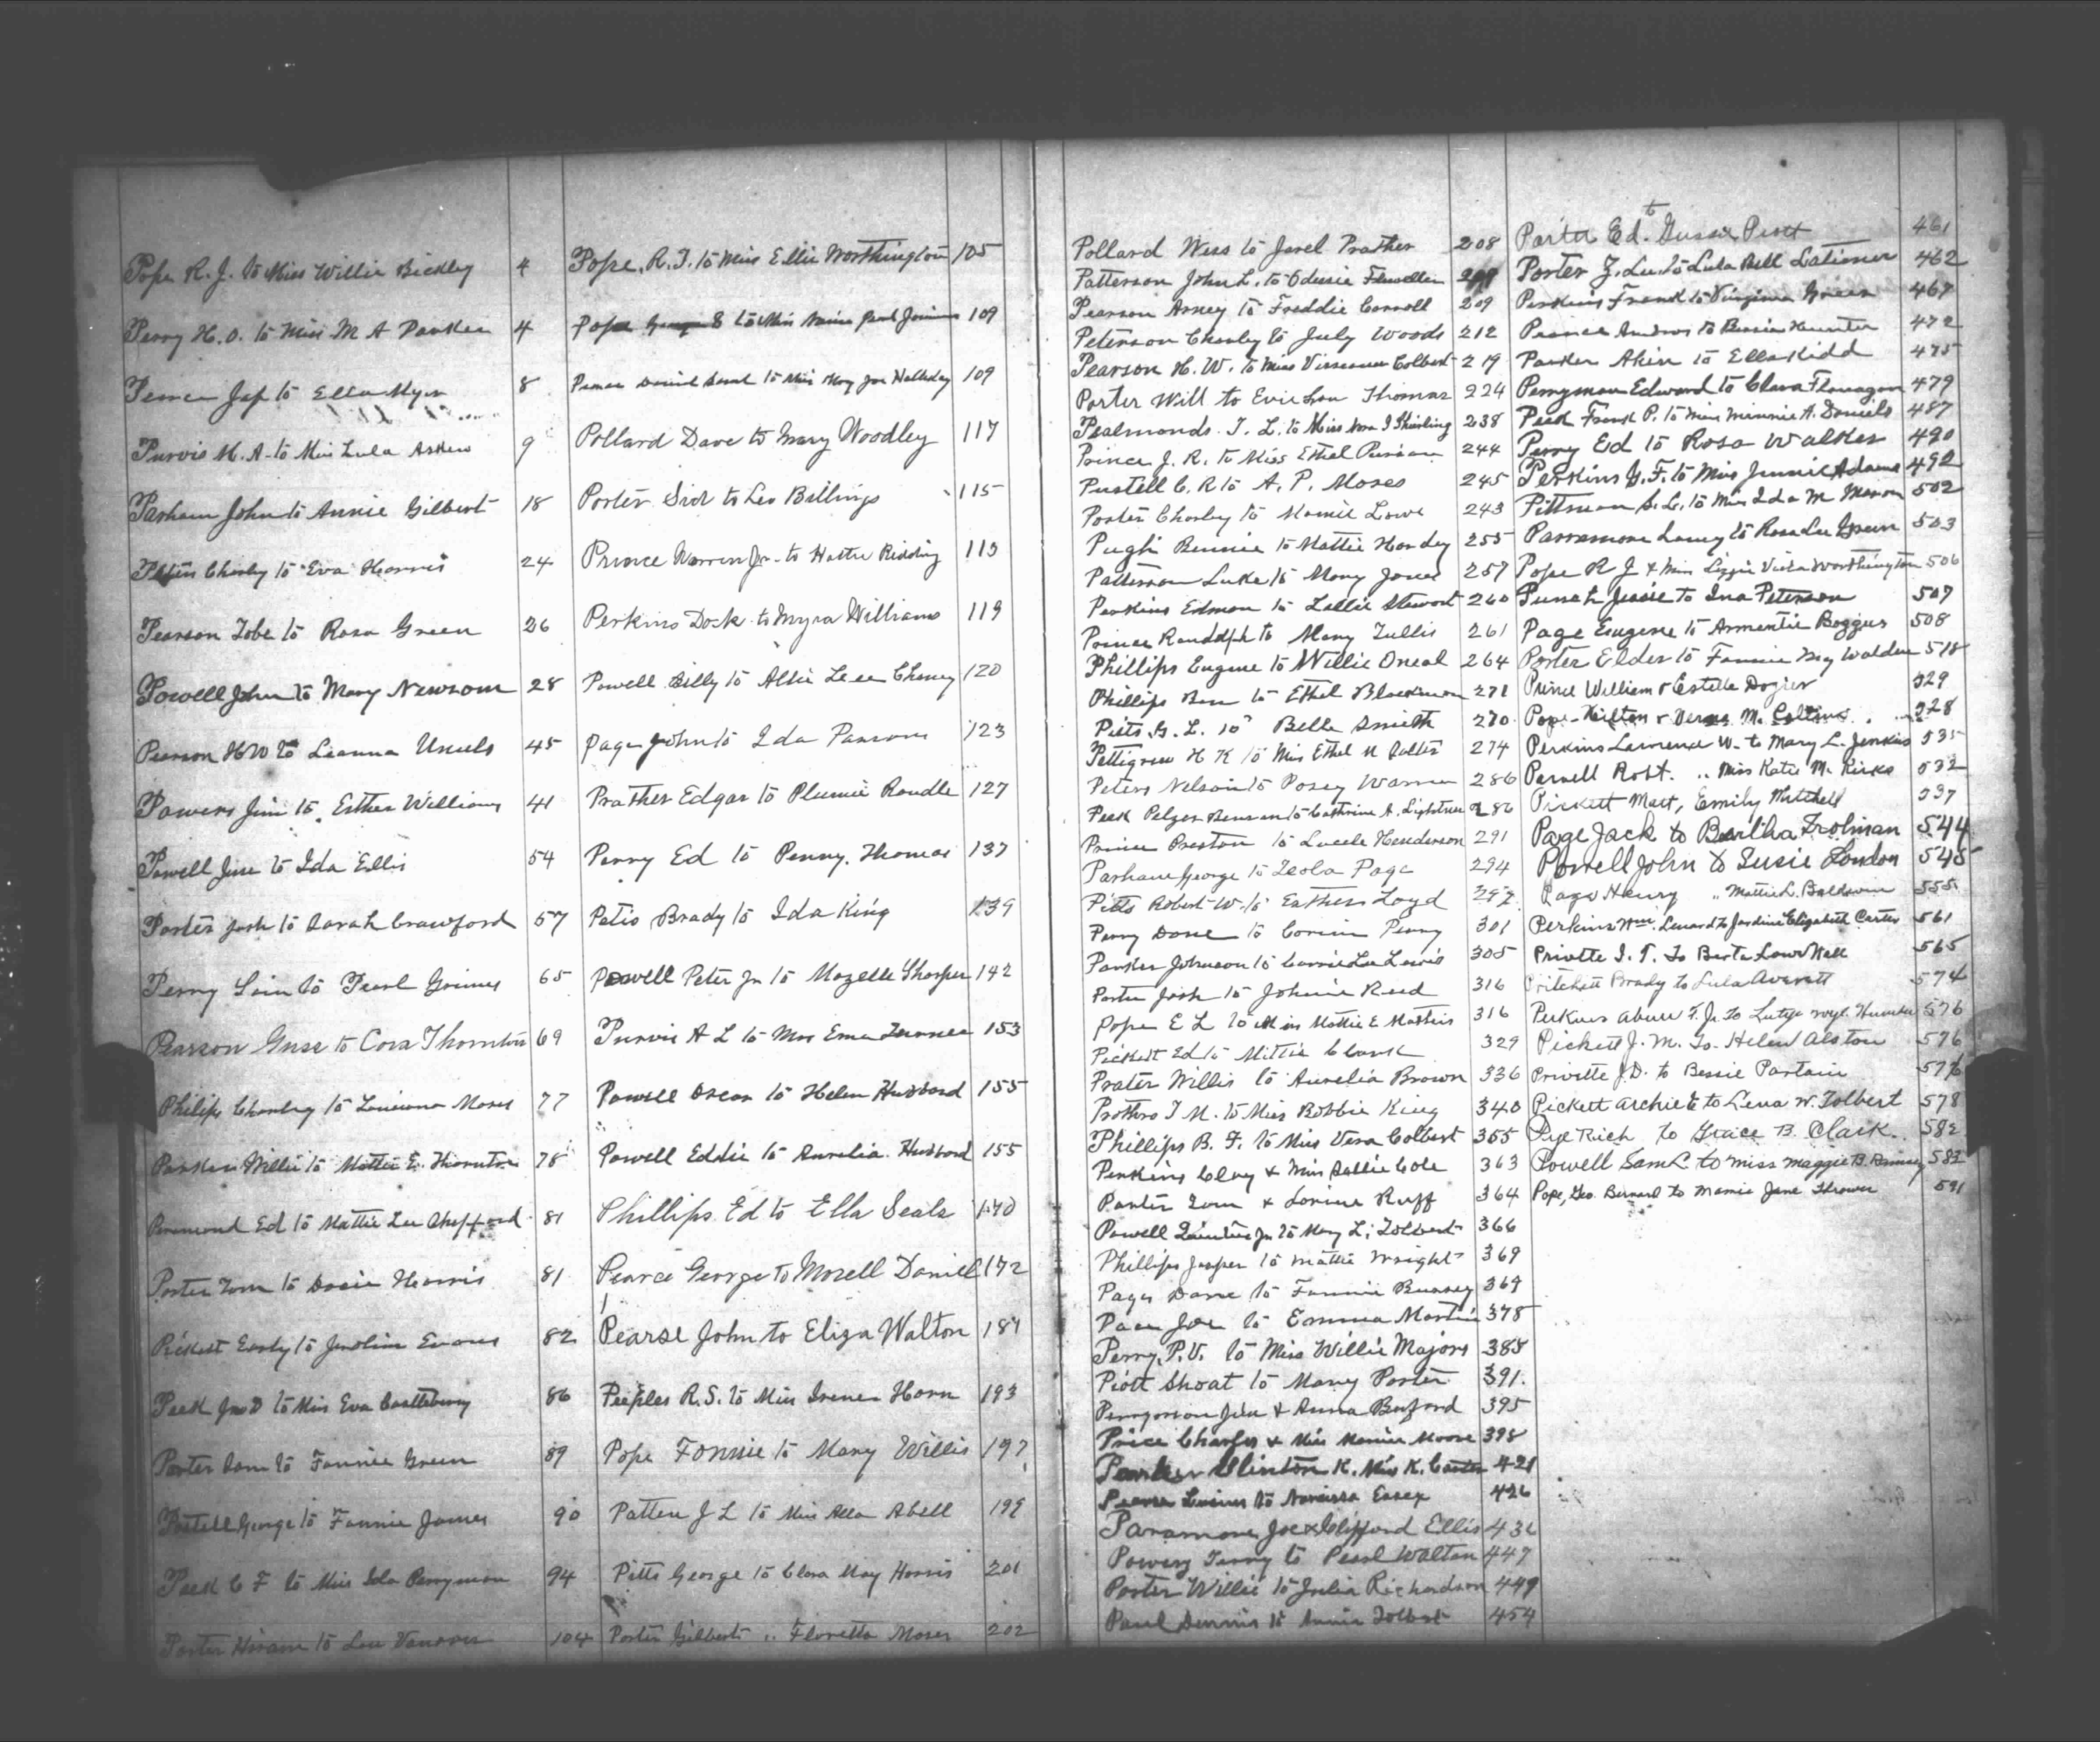 Pope R. J. to Miss Willie Bickley 4
Perry H. O. to Miss M A Parker 4
Jap to Ella Myer 8
Purvis M. A. to Miss Lula Askew 9
Parham John to Annie Gilbert 18
Peters Charley to Eva Harris 24
Pearson Tobe to Rosa Green 26
Powell John to Mary Newsom 28
Pearson H W to Leanna 45
Powers Jim to Esther Williams 41
Powell to Ida Ellis 54
Porter Josh to Sarah Crawford 57
Perry to Pearl Grimes 65
Pearson Guss to Cora Thornton 69
Philips Charley to Louisiana Moses 77
Parker Willie to Mattie E. Thornton 78
Ed to Mattie Lee Shefford 81
Porter Tom to Dosie Harris 81
Pickett Early to Evans 82
Peek Jno D to Miss Eva Castleberry 86
Porter Sam to Fannie Green 89
Postell George to Fannie James 90
Peek C F to Miss Ida Perryman 94
Porter Hiram to Lou 104
Pope, R. J. to Miss Ellie Worthington 105
Pope George S to Miss Pearl 109
Daniel to Miss May Joe Holladay 109
Pollard Dave to Mary Woodley 117
Porter Sid to Leo Billings 115
Prince Warren Jr. to Hattie Ridding 113
Perkins Dock to Myra Williams 119
Powell Billy to Allie Leee Chaney 120
Page John to Ida Parsons 123
Prather Edgar to Plumie Randle 127
Perry Ed to Penny Thomas 137
Petis Brady to Ida King 139
Powell Peter Jr to Mozelle Sharper 142
Purvis A L to Mrs Ema Turner 153
Powell Oscar to Helen Hubbard 155
Powell Eddie to Aurelia Hubbard 155
Phillips Ed to Ella Seals 170
Pearce George to Mozell Daniel 172
Pearse John to Eliza Walton 184
Peeples R. S. to Miss Irene Horn 193
Pope Fonnie to Mary Willis 197
Patten J L to Miss Alla Abell 199
Pitts George to Clara May Harris 201
Porter Gilbert .. Floretta Moses 202
Pollard Wess to Jarel Prather 208
Patterson John L. to Odessie Flewellen
Pearson Arney to Freddie Carroll 209
Peterson Charley to July Woods 212
Pearson H. W. to Miss Colbert 219
Porter Will to Evie Lou Thomas 224
Psalmonds T. L. to Miss 238
Prince J. R. to Miss Ethel 244
Pustell C. R to A. P. Moses 245
Porter Charley to Mamie Lowe 243
Pugh Bennie to Mattie Handey 255
Patterson Luke to Mary Jones 257
Perkins Edman to Lallie Stewart 260
Prince Randolph to Mary Tullis 261
Phillips Eugene to Willie Oneal 264
Phillips Ben to Ethel Blackmon 271
Pitts G. L. to Belle Smith 270
Pettigrew H K to Miss Ethel 274
Peters Nelson to Posey Warren 286
Peek Pelzer Benson to Cathrine A. Lightner 286
Prince Preston to Lucele Henderson 291
Parham George to Zeola Page 294
Pitts Robert W. to Eathers Loyd 297
Perry Dave to Corine Perry 301
Parker Johnson to Carrie Lee Lewis 305
Porter Josh to Johnnie Reed 316
Pope E L to Miss Mattie E Mathis 316
Pickett Ed to Mittie Clark 329
Prater Willis to Aurelia Brown 336
Prothro T M. to Miss Bobbie King 340
Phillips B. F. to Miss Vera Colbert 355
Perkins Clay & Miss Sallie Cole 363
Porter Tom & Lorine Ruff 364
Powell Jr to Mary L. Tolbert 366
Phillips Jasper to Mattie Wright 369
Pages Dave to Fannie Bussey 369
Pace Joe to Emma Martin 378
Perry P. V. to Miss Willie Majors 385
Piott Shoat to Mary Porter 391.
Jim & Anna Buford 395
Price Charles & Miss Mamie Moore 398
Parker Clinton K. Miss K. Carter 421
Pearse Lucius to Narcissa Essex 426
Paramore Joe & Clifford Ellis 436
Powery Terry to Pearl Walton 447
Porter Willie to Julia Richardson 449
Paul Dennis to Annie Tolbert 454
Porter Ed. to Gussie Piott 461
Porter Z. Lee to Lula Bell Latimer 462
Perkins Frank to Virginia Green 467
Pearce Andrew to Bessie Hunter 472
Parker Akin to Ella Kidd 475
Perryman Edward to Clara Flanagan 479
Peek Frank P. to Miss Minnie A. Daniels 487
Perry Ed to Rosa Walker 490
Perkins G. F. to Miss Jennie Adams 492
Pittman S. L. to Miss Ida M Mason 502
Parramore Laney to Rosa Lee Green 503
Pope R J & Miss Lizzie Viola Worthington 506
Jessie to Ina Peterson 507
Page Eugene to Armentie Boggus 508
Porter Elder to Fannie May Walden 518
Prince William & Estelle Dozier 529
Pope Hilton & Verna M. Collins 528
Perkins Lawrence W. to Mary L. Jenkins 535
Pernell Robt. .. Miss Katie M. Kirks 532
Pickett Mart, Emily Mitchell 537
Page Jack to Bertha Trolman 544
Powell John to Susie London 545
Page Henry .. Mattie L. Baldwin 555
Perkins Wm. Lenard to Jardine Elizabeth Carter 561
Privette I. T. to Berta Lowe Hall 565
Pritchett Brady to Lula Averett 574
Perkins Abner F. Jr. to 576
Pickett J. M. to Helen Alston 576
Privette J. D. to Bessie Partain 576
Pickett Archie E to Lena W. Tolbert 578
Pye Rich to Grace B. Clark. 582
Powell Sam L. to Miss Maggie B. Ramsey 583
Pope, Geo. Bernard to Mamie Jane Thrower 591